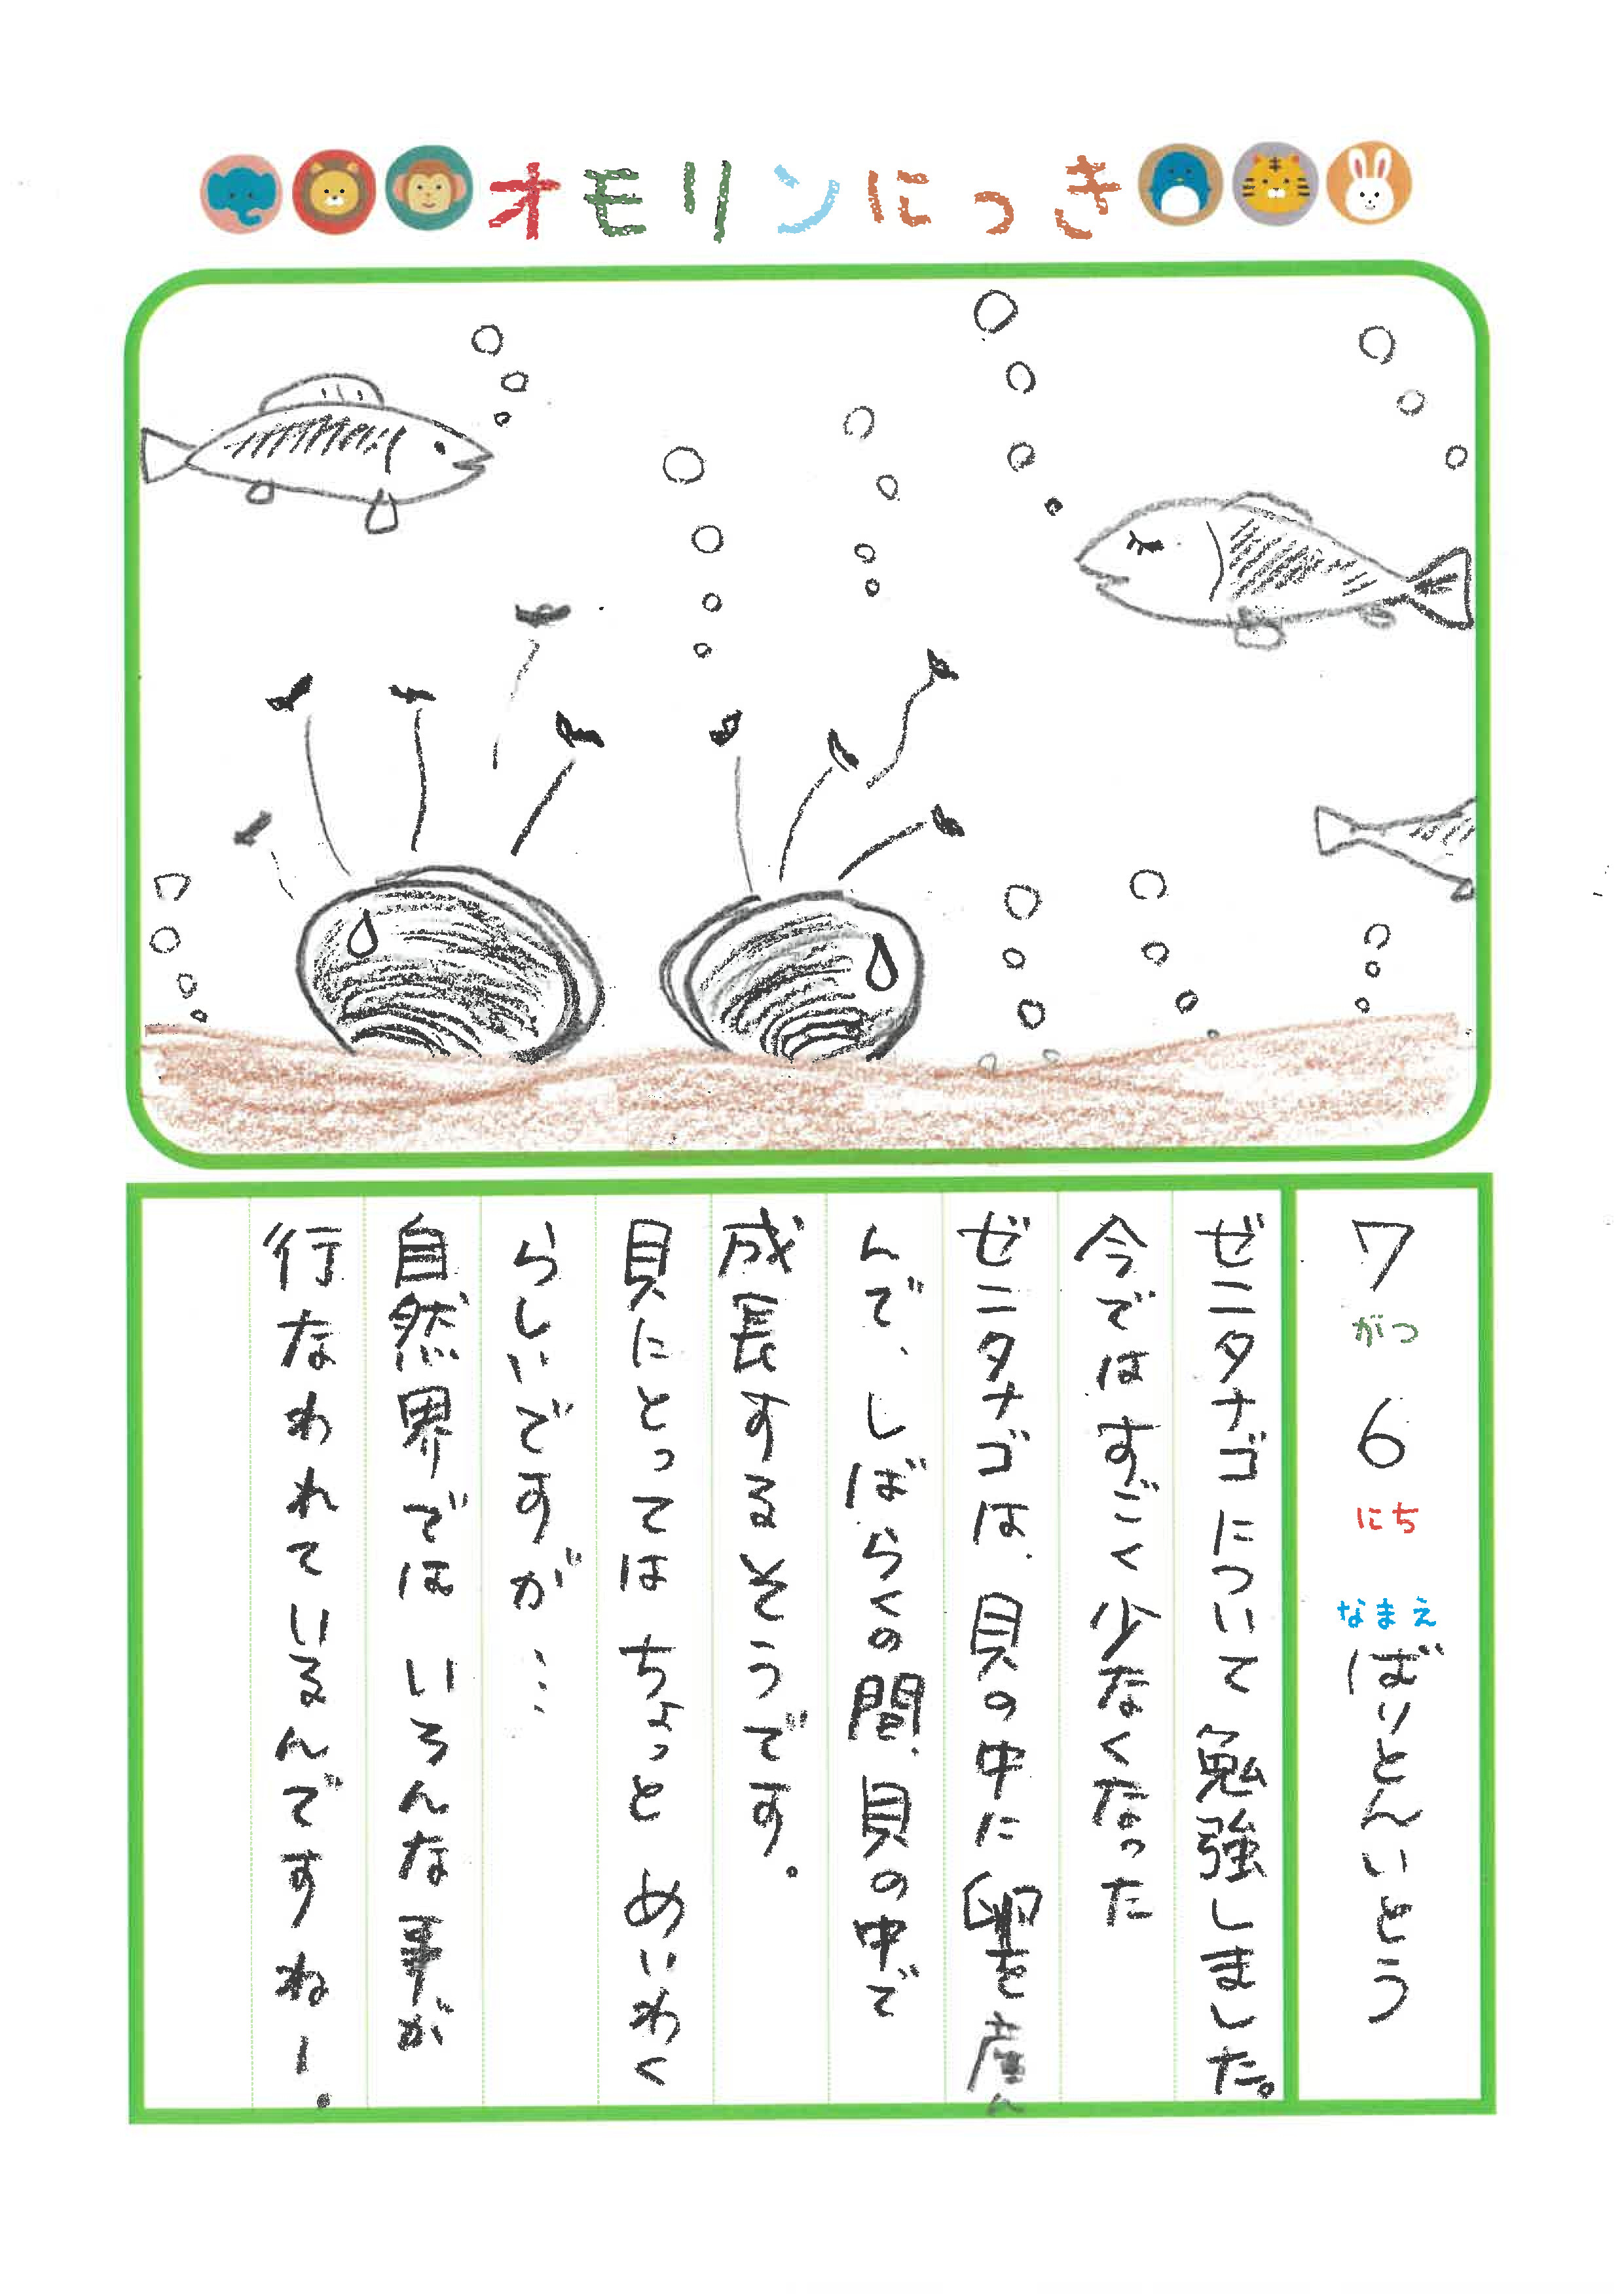 オモリンにっき
7がつ6にち なまえ ばりとんいとう
ゼニタナゴについて勉強しました。
今ではすごく少なくなった
ゼニタナゴは、貝の中に卵を産
んで、しばらくの間、貝の中で
成長するそうです。
貝にとってはちょっと めいわく
らしいですが…
自然界では いろんな事が
行なわれているんですねー。